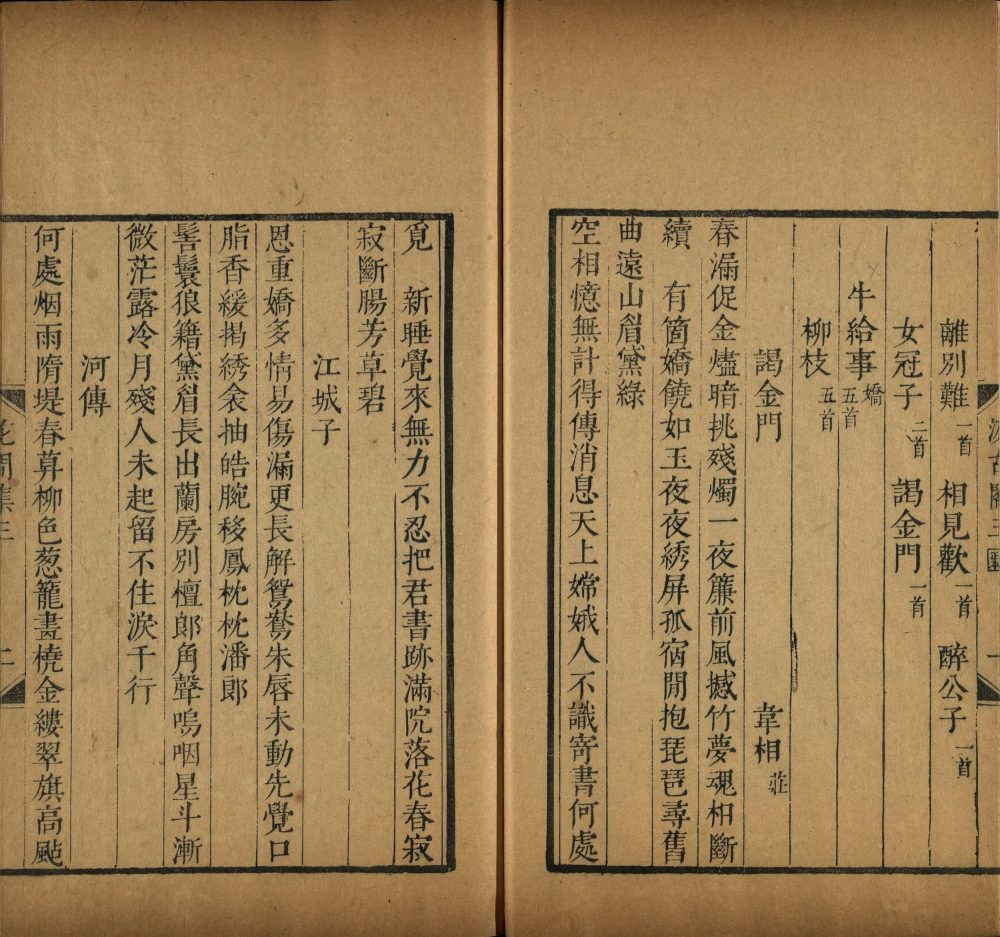 離別難一首 相見歡一首 醉公子一首
女冠子二首 謁金門一首
牛給事嶠五首
柳枝五首
謁金門 韋相莊
春漏促金燼暗挑殘燭一夜簾前風撼竹夢魂相斷
續 有箇嬌饒如玉夜夜綉屏孤宿閒抱琵琶尋舊
曲遠山眉黛綠
空相憶無計得傳消息天上嫦娥人不識寄書何處
覓 新睡覺來無力不忍把君書跡滿院落花春寂
寂斷腸芳草碧
江城子
恩重嬌多情易傷漏更長解鴛鴦朱唇未動先覺口
脂香緩揭綉衾抽皓腕移鳳枕枕潘郎
髻鬟狼籍黛眉長出蘭房別檀郎角聲嗚咽星斗漸
微茫露冷月殘人未起留不住淚千行
河傳
何處烟雨隋堤春暮柳色葱籠畫橈金縷翠旗高颭
花間集三 二